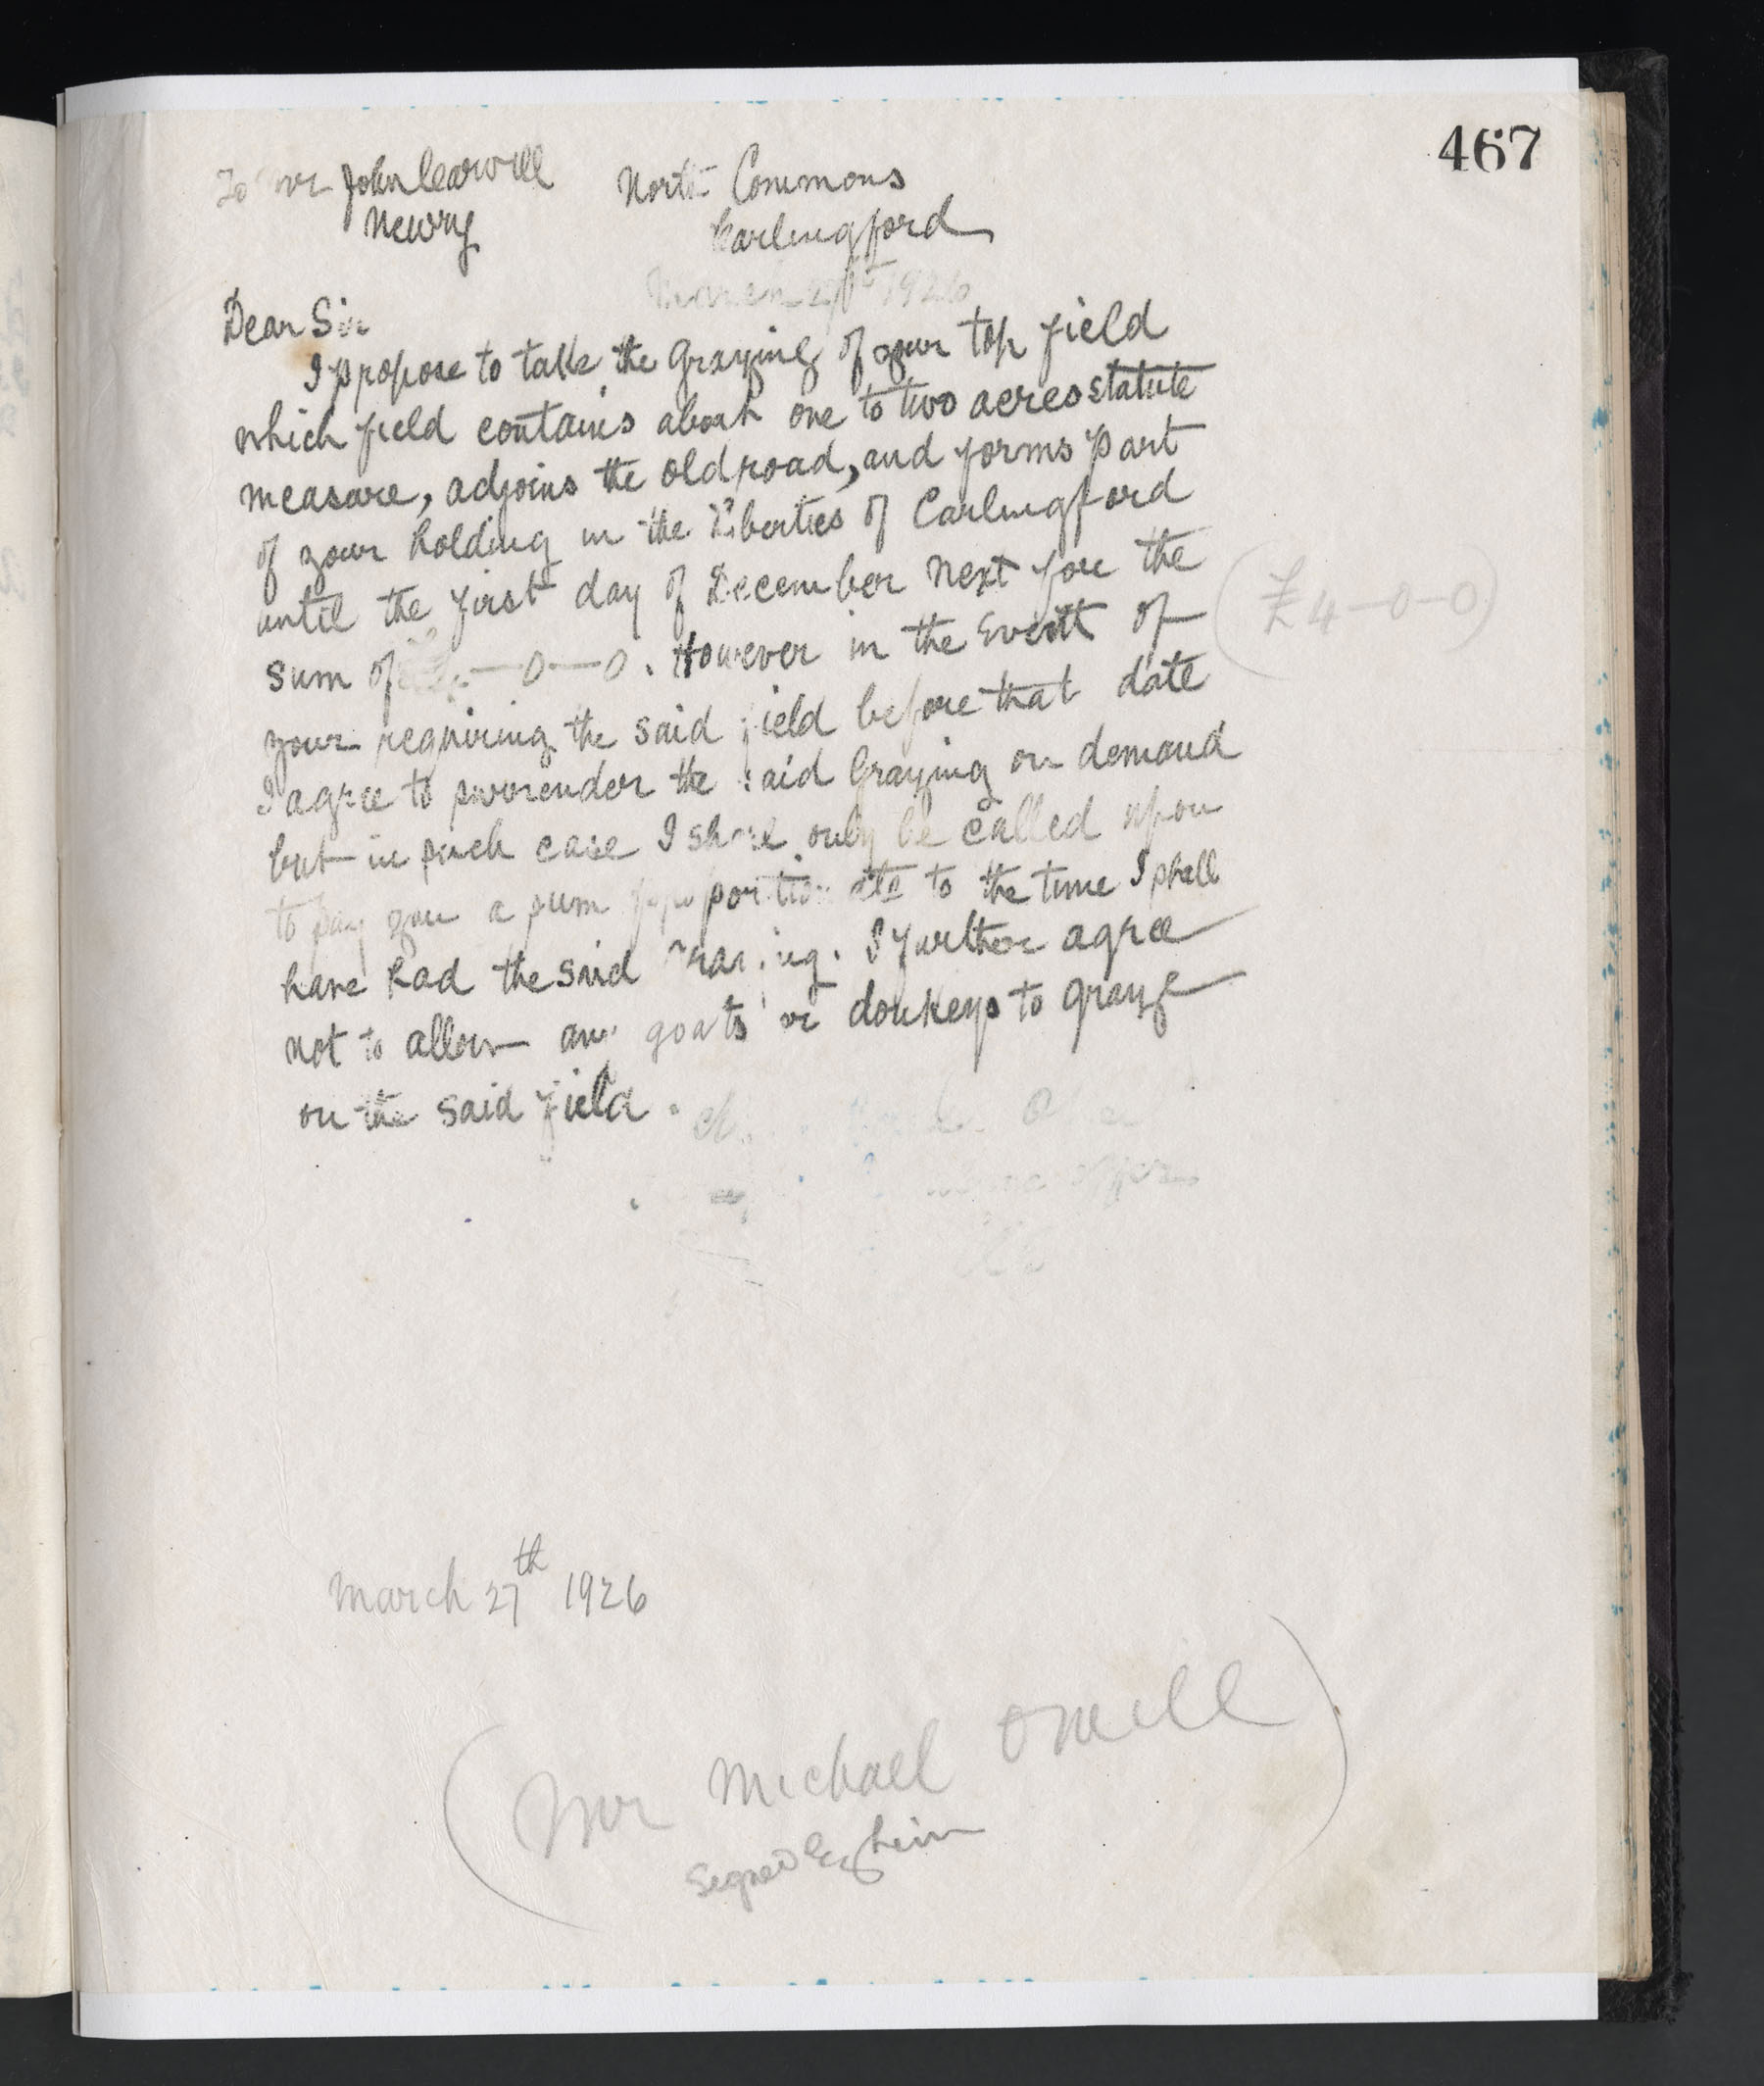 467
To Mr John Cearwill North Commons
Newry Carlingford
March 27th 1926
Dear Sir
I propose to take the Grazing of your top field
which field contains about one to two acres statute
measure, adjoins the old road, and forms part
of your holding in the Liberties of Carlingford
until the first day of December next for the
sum of £4—0—0. However in the Event of (£4—0—0)
your requiring the said field before that date
I agree to surrender the said Grazing on demand
but in such case I shall only be called upon
to pay you a sum proportionate to the time I shall
have had the said Grazing. I further agree
not to allow any goats or donkeys to graze
on the said field.
March 27th 1926
(Mr Michael O'Neill
Signed by him)